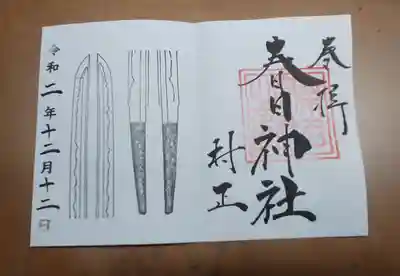 奉拝
春日神社
村正
令和二年十二月十二日